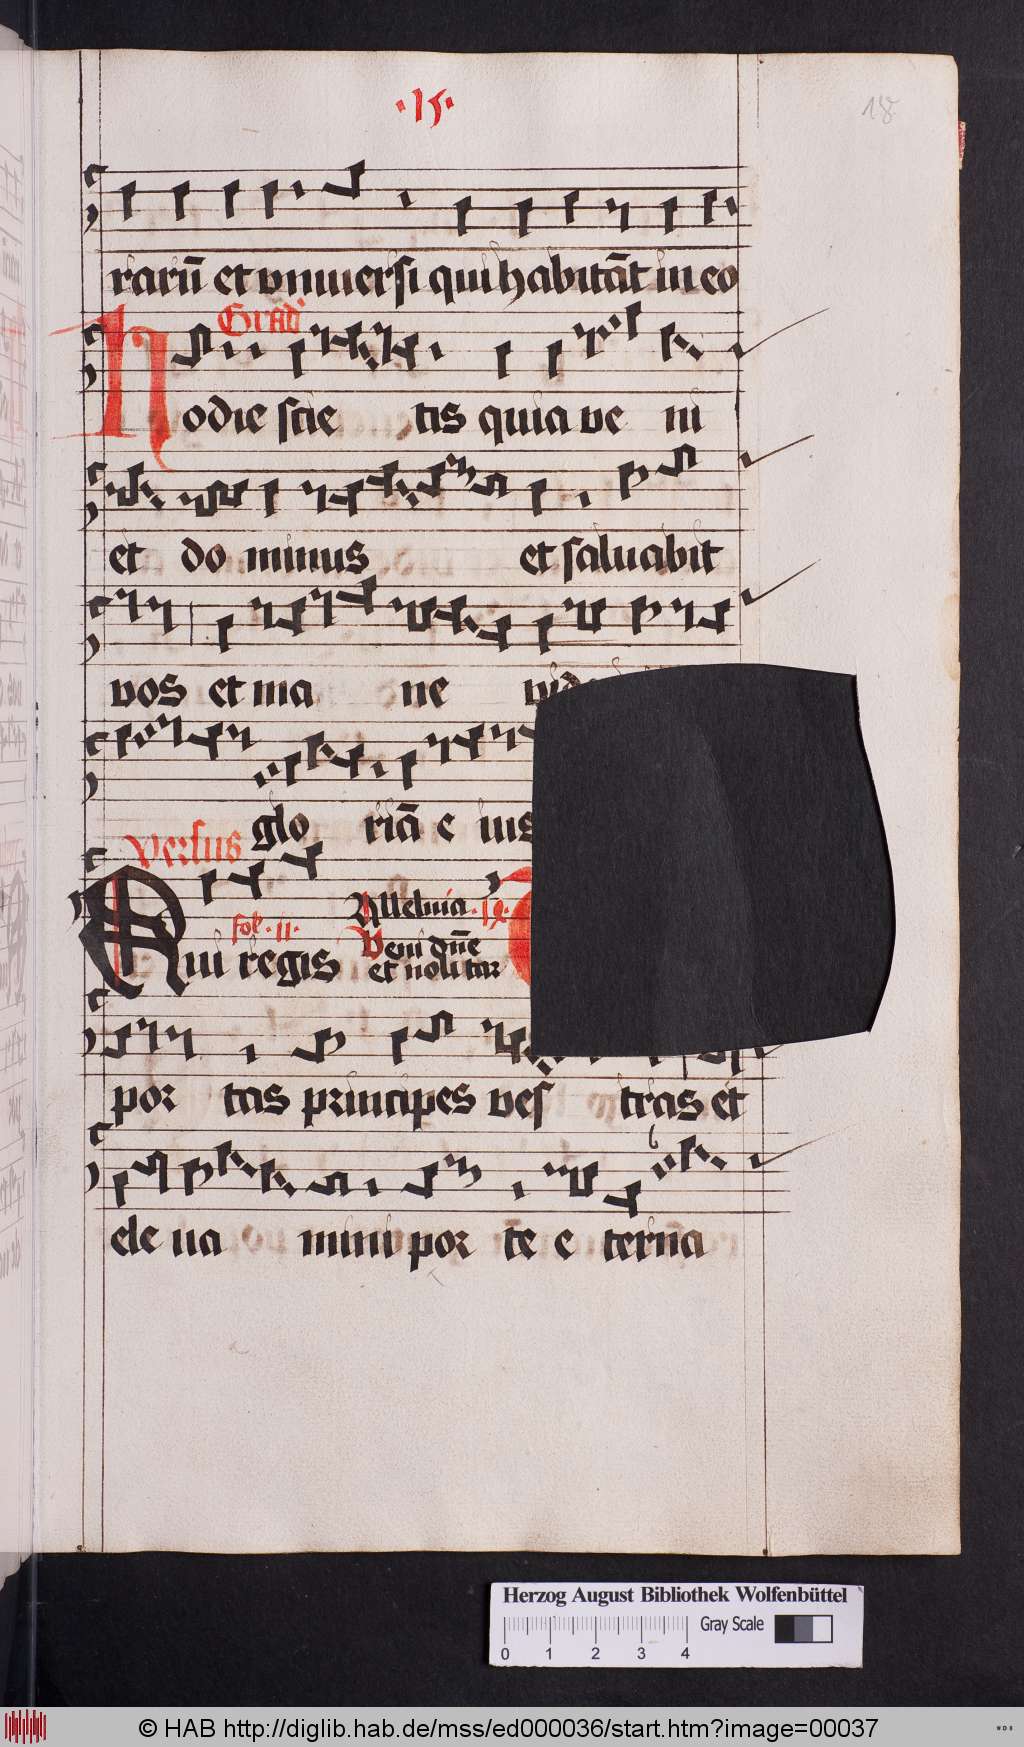 ·15·
18
rarū et vniuersi qui habitāt in eo
Grad'
Hodie scie tis quia ve ni
et do minus et saluabit
vos et ma ne
glo riā e ius
Versus
Alleluia
fol· 11·
Qui regis
Veni dn̄e
et noli tar
por tas principes ves tras et
ele ua mini por te e terna
Herzog August Bibliothek Wolfenbüttel
Gray Scale
0 1 2 3 4
© HAB http://diglib.hab.de/mss/ed000036/start.htm?image=00037